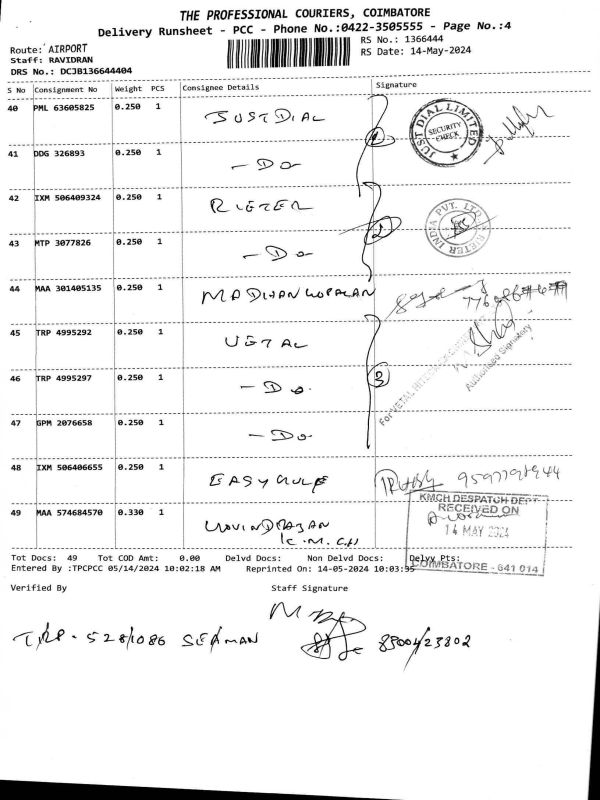 THE PROFESSIONAL COURIERS, COIMBATORE
Delivery Runsheet - PCC - Phone No.:0422-3505555 - Page No.:4
Route: AIRPORT
RS No.: 1366444
Staff: RAVIDRAN
RS Date: 14-May-2024
DRS No.: DCJB136644404
S No Consignment No Weight PCS Consignee Details Signature
40 PML 63605825 0.250 1 JUSTDIAL
JUST DIAL LIMITED
SECURITY CHECK
1
41 DDG 326893 0.250 1 - Do -
42 IXM 506409324 0.250 1 RIETER
RIETER INDIA PVT. LTD
2
43 MTP 3077826 0.250 1 - Do -
44 MAA 301405135 0.250 1 MADHANGOPALAN
45 TRP 4995292 0.250 1 VETAL
For VETAL
Authorised Signatory
46 TRP 4995297 0.250 1 - Do.
3
47 GPM 2076658 0.250 1 - Do -
48 IXM 506406655 0.250 1 EASYGULF
49 MAA 574684570 0.330 1 GOVINDRAJAN
K.M.C.H
KMCH DESPATCH DEPT
RECEIVED ON
14 MAY 2024
COIMBATORE - 641 014
Tot Docs: 49 Tot COD Amt: 0.00 Delvd Docs: Non Delvd Docs: Delvy Pts:
Entered By :TPCPCC 05/14/2024 10:02:18 AM Reprinted On: 14-05-2024 10:03:35
Verified By Staff Signature